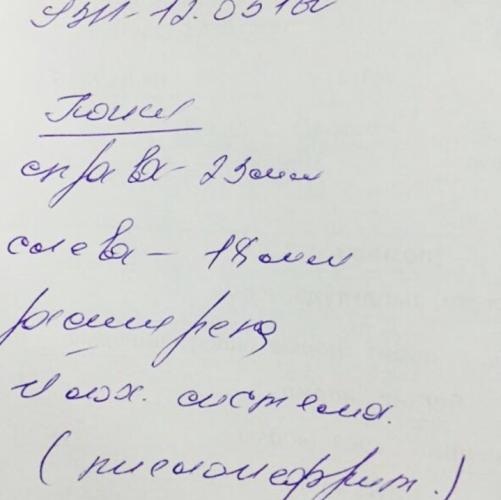 УЗИ - 12.05.16г
Почки
справа - 23мм
слева - 18мм
расширена
лох. система.
(пиелонефрит.)